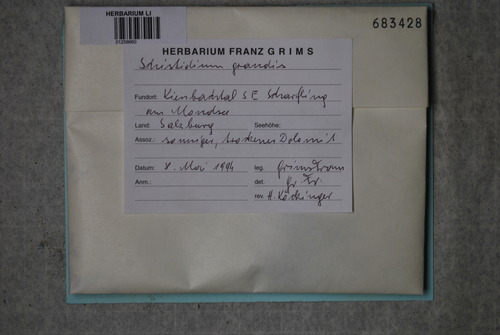 HERBARIUM LI
683428
HERBARIUM FRANZ GRIMS
Schistidium grandis
Fundort: Kienbachtal SE Scharfling
am Mondsee
Land: Salzburg Seehöhe:
Assoz.: sonniger, trockener Dolomit
Datum: 8. Mai 1994 leg. Grims Franz
Anm.: det. Gr. Fr.
rev. H. Köckinger